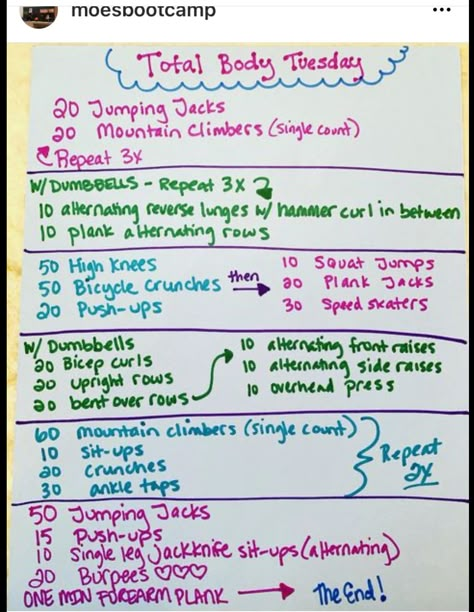 moesbootcamp
Total Body Tuesday
20 Jumping Jacks
20 Mountain Climbers (single count)
Repeat 3x
W/ DUMBBELLS - Repeat 3X
10 alternating reverse lunges w/ hammer curl in between
10 plank alternating rows
50 High Knees
50 Bicycle Crunches
20 Push-ups
then
10 Squat Jumps
20 Plank Jacks
30 Speed skaters
W/ Dumbbells
20 Bicep curls
20 upright rows
20 bent over rows
10 alternating front raises
10 alternating side raises
10 overhead press
60 mountain climbers (single count)
10 sit-ups
20 crunches
30 ankle taps
Repeat
2x
50 Jumping Jacks
15 Push-ups
10 Single leg Jackknife sit-ups (alternating)
20 Burpees ♡♡♡
ONE MIN FOREARM PLANK → The End!